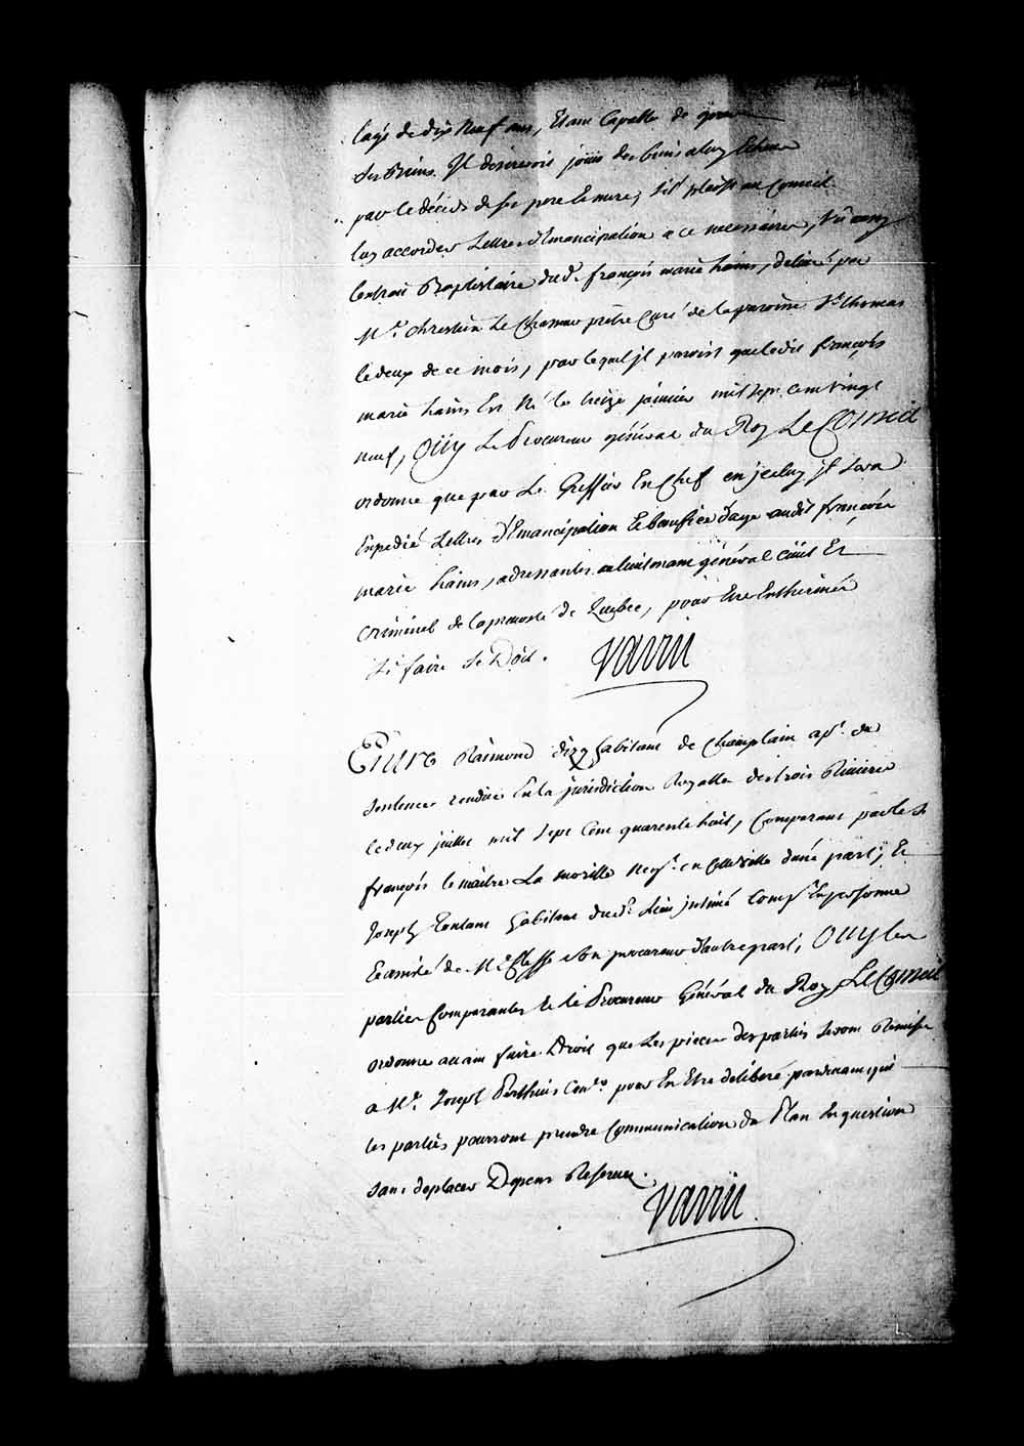 lage de dix Neuf ans, Etant Capable de gerer
Ses Biens Jl desireroit jouir des biens a luy Echus
par le décéds de ses pere et mere, s'il plaist au Conseil
luy accorder Lettres d'Emancipation a ce necessaires, Vû aussy
lextrait Baptistaire dud. françois marie hains, delivré par
Mre. chrestien Le prêtre Curé de la paroisse St. thomas
le deux de ce mois, par lequel jl paroist que ledit françois
marie hains Est Né le treize janvier mil sept cent vingt
neuf, Oüy Le Procureur général du Roy Le Conseil
ordonne que par Le Greffier En Chef en jceluy jl sera
Expedié Lettres d'Emancipation Et benefice d'age audit françois
marie hains, adressantes au lieutenant général Civil Et
Criminel de la prevosté de Quebec, pour Etre Entherinées
Si faire Se Doit.
Varin
Entre Raimond habitant de Champlain apt. de
Sentence rendue En la jurisdiction Royalle des trois Rivieres
le deux juillet mil Sept Cent quarente huit, Comparant par le Sr
françois le maitre La morille Negt. en cette ville d'une part; Et
Joseph Toutant habitant dud. lieu jntimé Compt. En personne
Et assisté de Me. Clesse son procureur d'autre part; Ouy les
parties Comparantes Et le Procureur Général du Roy Le Conseil
ordonne avant faire Droit que Les pieces des parties seront Remises
a Me. Joseph Perthuis Coner. pour En Etre deliberé pendant quoi
les parties pourront prendre Communication du Plan En question
sans deplacer Depens Reservez.
Varin